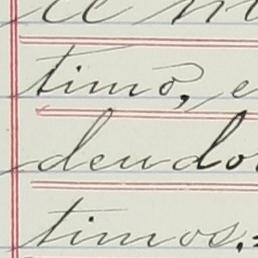 timo, e
deudo
timos.=